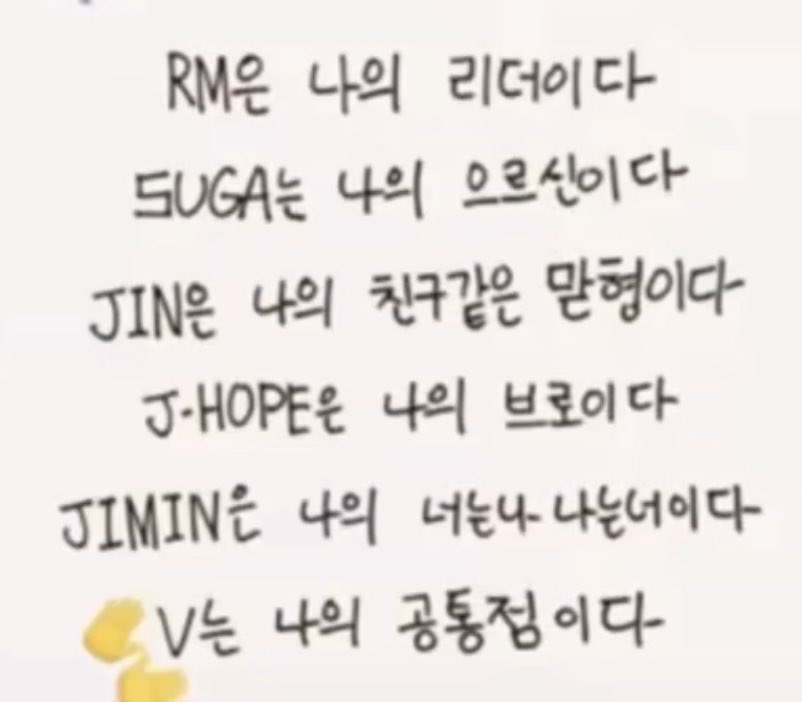 RM은 나의 리더이다
SUGA는 나의 으르신이다
JIN은 나의 친구같은 맏형이다
J-HOPE은 나의 브로이다
JIMIN은 나의 너는나 나는너이다
V는 나의 공통점이다